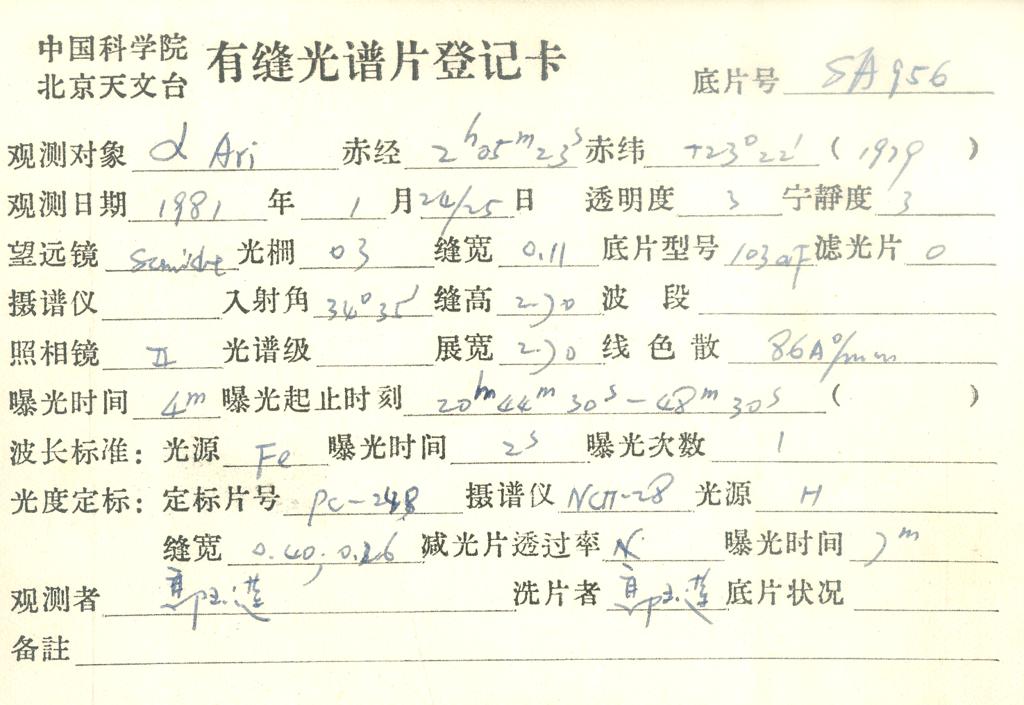 中国科学院
北京天文台
有缝光谱片登记卡
底片号 SA956
观测对象 α Ari 赤经 2h05m23s 赤纬 +23°22′ (1979)
观测日期 1981 年 1 月 24/25 日 透明度 3 宁静度 3
望远镜 光栅 03 缝宽 0.11 底片型号 103aF 滤光片 0
摄谱仪 入射角 34°35′ 缝高 2.70 波段
照相镜 II 光谱级 展宽 2.70 线色散 86A°/mm
曝光时间 4m 曝光起止时刻 20h44m30s-48m30s ( )
波长标准: 光源 Fe 曝光时间 2s 曝光次数 1
光度定标: 定标片号 pc-248 摄谱仪 ИСП-28 光源 H
缝宽 0.40, 0.26 减光片透过率 曝光时间 7m
观测者 洗片者 底片状况
备註